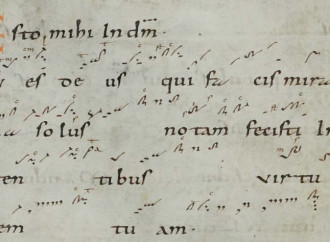 sto mihi In dm̅
es de us qui fa cis mira
solus notam fecisti In
ten tibus virtu
em tu am.